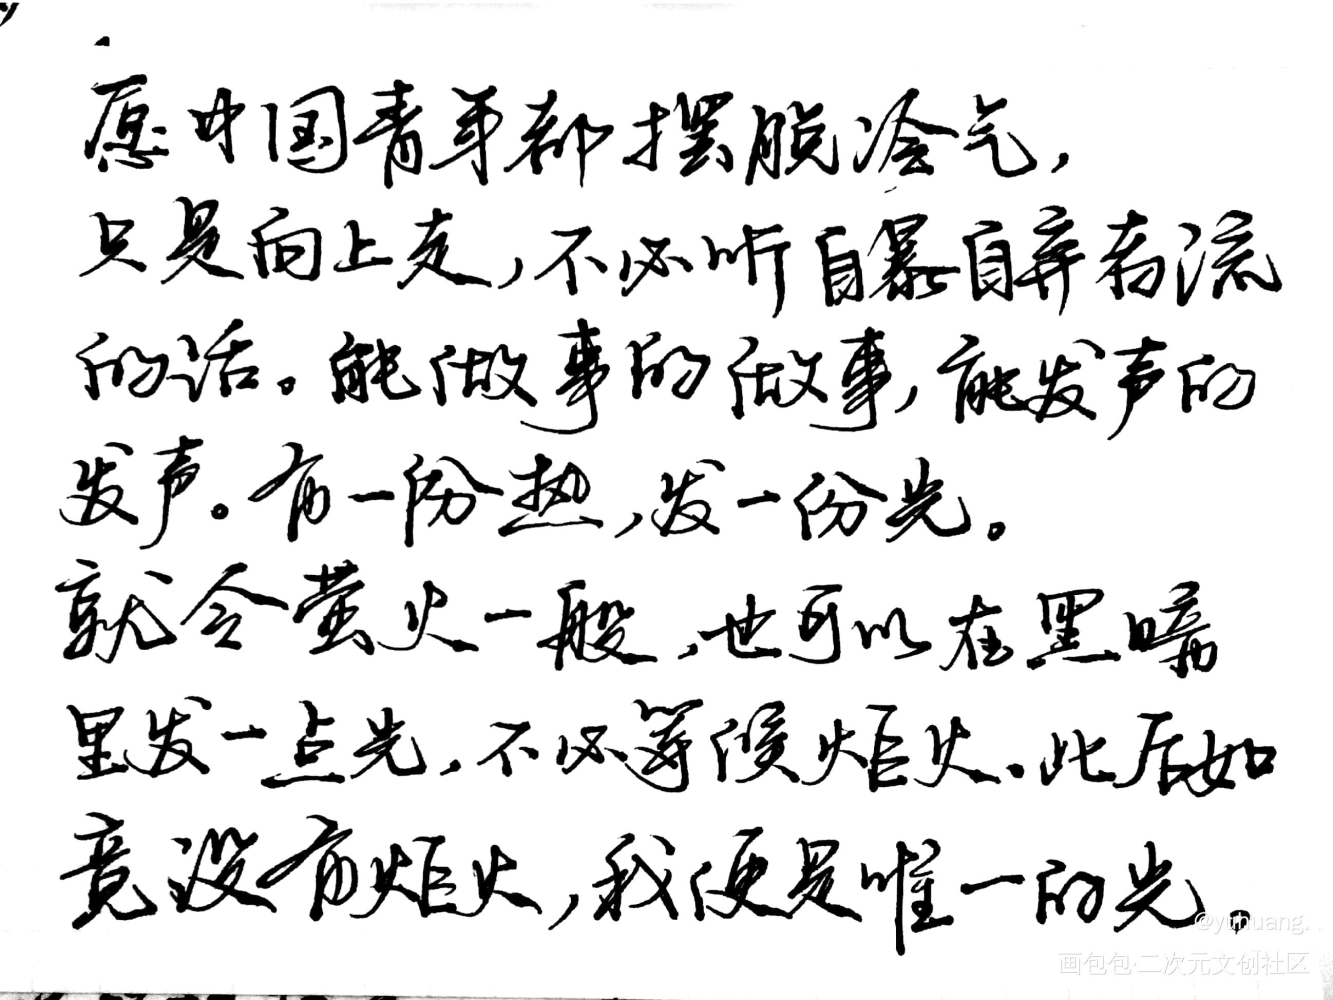 愿中国青年都摆脱冷气，
只是向上走，不必听自暴自弃者流
的话。能做事的做事，能发声的
发声。有一份热，发一份光。
就令萤火一般，也可以在黑暗
里发一点光，不必等候炬火。此后如
竟没有炬火，我便是唯一的光。
@yuhuang.
画包包·二次元文创社区